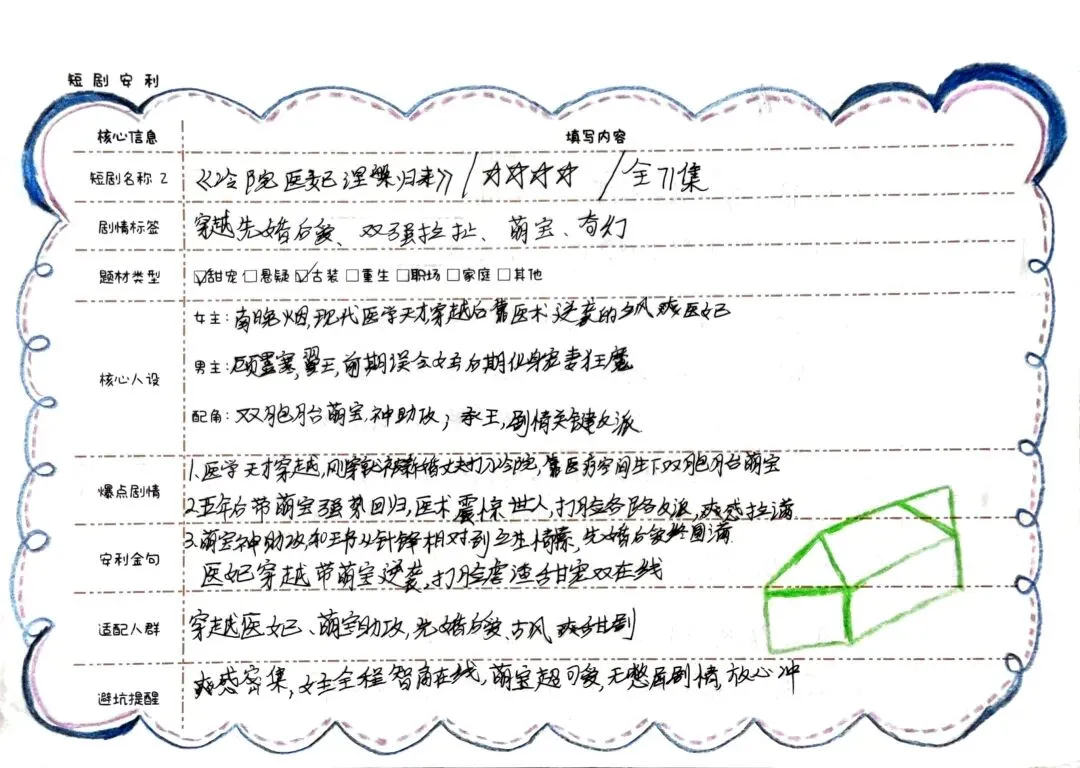 短剧安利
核心信息 填写内容
短剧名称 2 《冷院医妃涅槃归来》/☆☆☆☆ /全71集
剧情标签 穿越先婚后爱、双强拉扯、萌宝、奇幻
题材类型 ☑甜宠☐悬疑☑古装☐重生☐职场☐家庭☐其他
女主: 南晚烟,现代医学天才,穿越后靠医术逆袭的飒爽医妃
核心人设 男主: 顾墨寒,翼王,前期误会女主后期化身宠妻狂魔
配角: 双胞胎萌宝,神助攻; 承王,剧情关键反派
1.医学天才穿越,刚穿就被新婚丈夫打入冷院,靠医疗空间生下双胞胎萌宝
爆点剧情
2.五年后带萌宝强势回归,医术震惊世人,打脸各路反派,爽感拉满
3.萌宝神助攻,和王爷从针锋相对到互生情愫,先婚后爱终圆满
安利金句 医妃穿越带萌宝逆袭,打脸虐渣甜宠双在线
适配人群 穿越医妃、萌宝助攻,先婚后爱,古风爽甜剧
避坑提醒 爽感密集,女主全程智商在线,萌宝超可爱,无憋屈剧情,放心冲